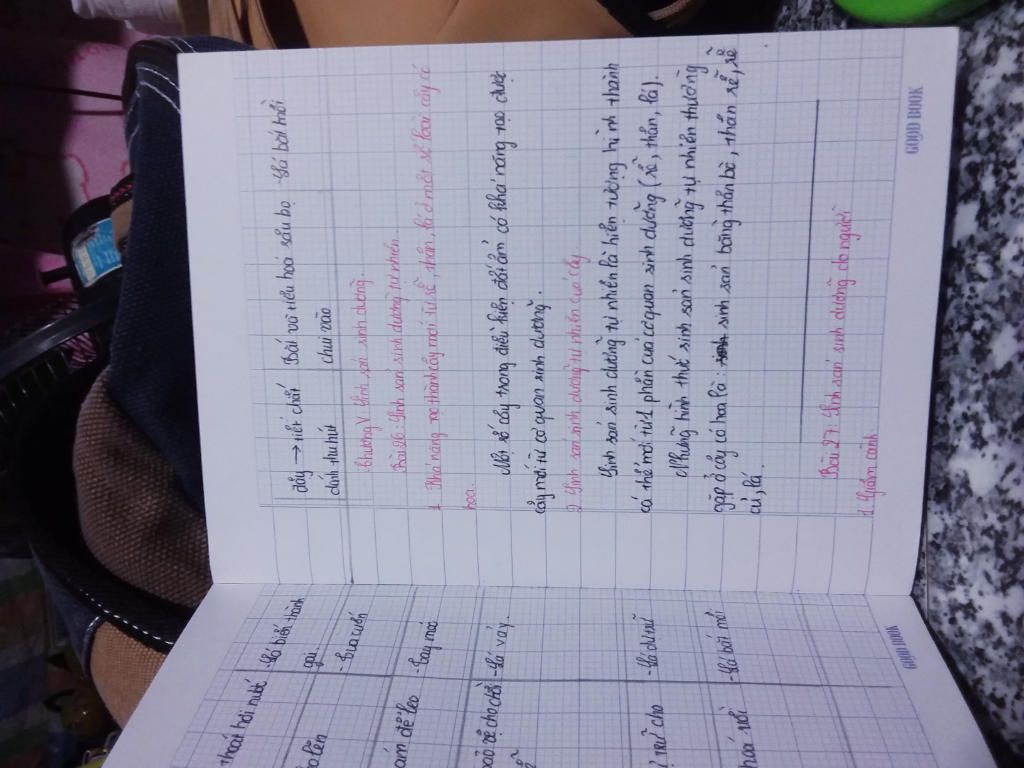 thoát hơi nước
-Lá biến thành
gai
o lên
-Tua cuốn
ám để leo
-Tay móc
bảo vệ cho chồi
-Lá vảy.
trữ cho
-Lá dự trữ
hoá rồi
-Lá bắt mồi
đầy → tiết chất
dính thu hút
Bắt và tiêu hoá sâu bọ
chui vào
-Lá bắt mồi
Chương V Sinh sản sinh dưỡng.
Bài 26: Sinh sản sinh dưỡng tự nhiên.
1 Khả năng tạo thành cây mới từ rễ, thân, lá ở một số loài cây có
hoa.
Một số cây trong điều kiện đất ẩm có khả năng tạo được
cây mới từ cơ quan sinh dưỡng.
2 Sinh sản sinh dưỡng tự nhiên của cây
Sinh sản sinh dưỡng tự nhiên là hiện tượng hình thành
cá thể mới từ 1 phần của cơ quan sinh dưỡng (rễ, thân, lá).
Những hình thức sinh sản sinh dưỡng tự nhiên thường
gặp ở cây có hoa là: sinh sản bằng thân bò, thân rễ, rễ
củ, lá.
Bài 27: Sinh sản sinh dưỡng do người
1. Giâm cành.
GOOD BOOK
GOOD BOOK